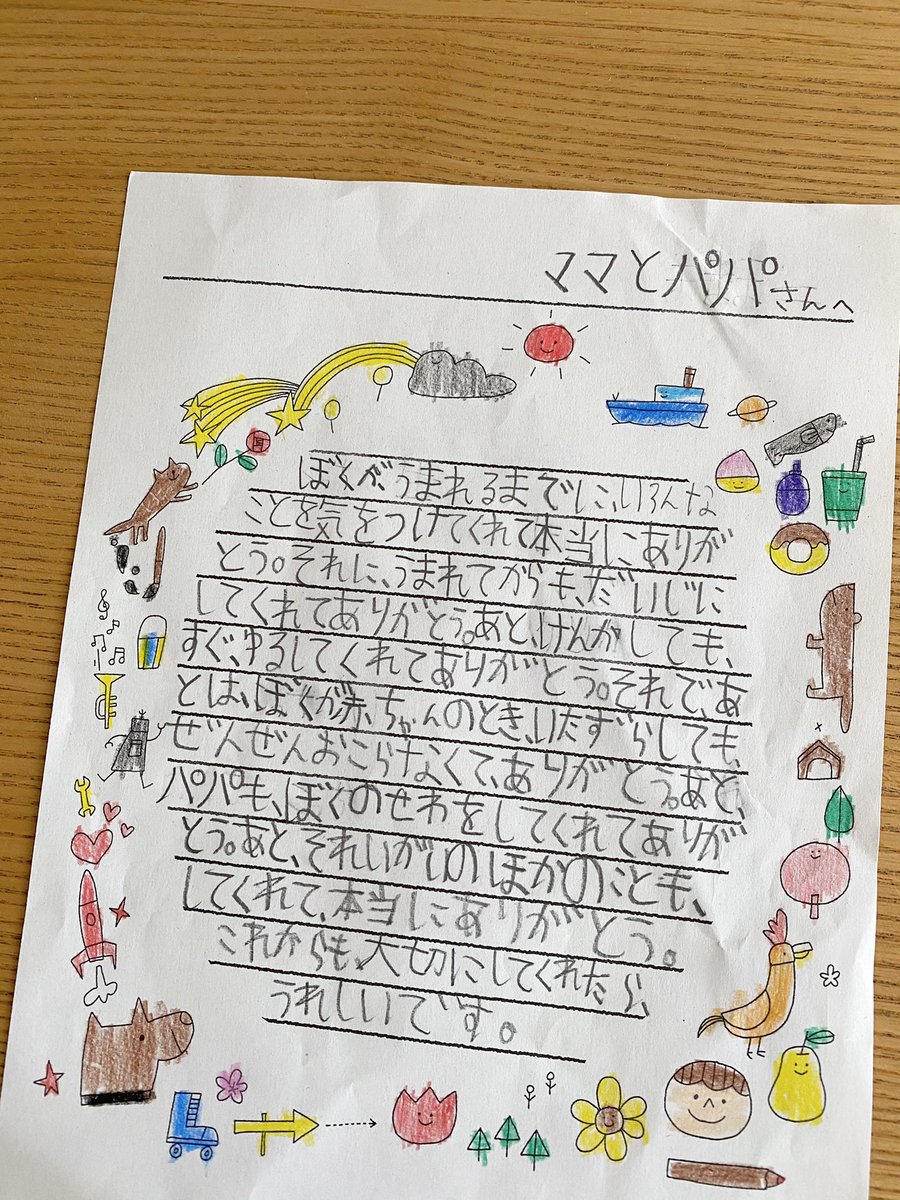 ママとパパさんへ
ぼくが、うまれるまでに、いろんな
ことを気をつけてくれて本当にありが
とう。それに、うまれてからも、だいじに
してくれてありがとう。あと、けんかしても、
すぐ、ゆるしてくれてありがとう。それで、あ
とは、ぼくが赤ちゃんのとき、いたずらしても、
ぜんぜんおこらなくて、ありがとう。あと、
パパも、ぼくのせわをしてくれてありが
とう。あと、それいがいのほかのことも、
してくれて、本当にありがとう。
これからも、大切にしてくれたら、
うれしいです。